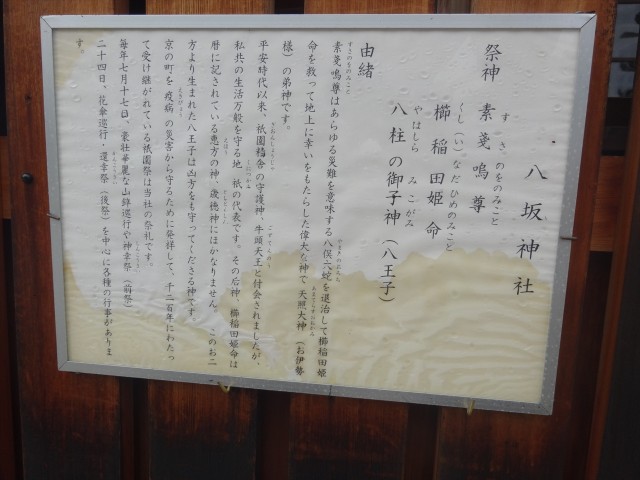 八坂神社
祭神 素戔嗚尊
すさのをのみこと
櫛稲田姫命
くし(い)なだひめのみこと
八柱の御子神(八王子)
やはしら みこがみ
由緒
すさのをのみこと
素戔嗚尊はあらゆる災難を意味する八俣大蛇を退治して櫛稲田姫
命を救って地上に幸いをもたらした偉大な神で天照大神(お伊勢
様)の弟神です。
平安時代以来、祇園精舎の守護神、牛頭天王と付会されましたが、
私共の生活万般を守る地祇の代表です。その后神、櫛稲田姫命は
暦に記されている恵方の神、歳徳神にほかなりません。このお二
方より生まれた八王子は凶方をも守ってくださる神です
京の町を疫病の災害から守るために発祥して、千二百年にわたっ
て受け継がれている祇園祭は当社の祭礼です。
毎年七月十七日、豪壮華麗な山鉾巡行や神幸祭(前祭)
二十四日、花傘巡行・還幸祭(後祭)を中心に各種の行事がありま
す。